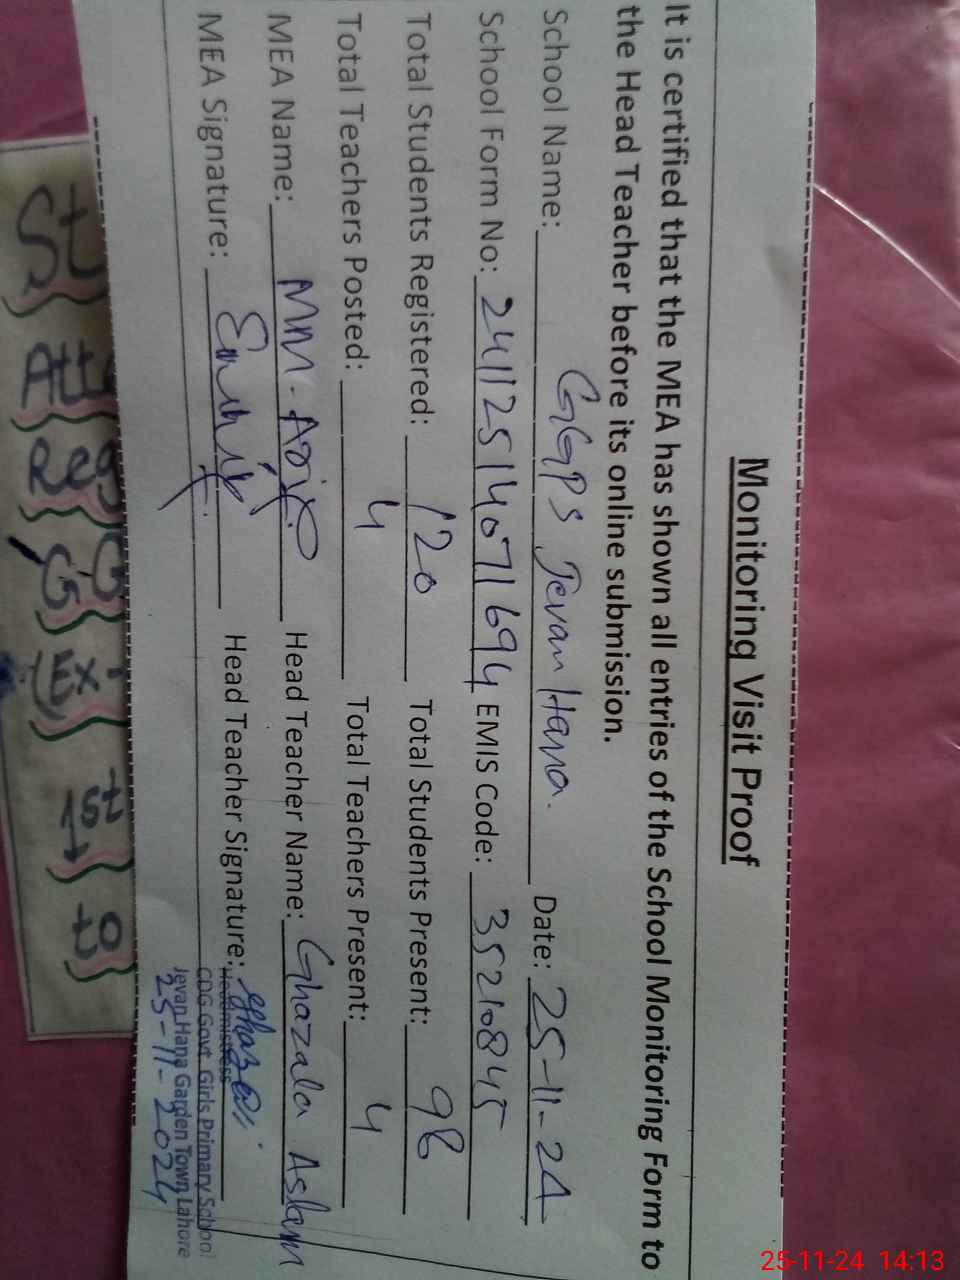 Monitoring Visit Proof
It is certified that the MEA has shown all entries of the School Monitoring Form to
the Head Teacher before its online submission.
School Name: GGPS Jevan Hana. Date: 25-11-24
School Form No: 24112514071694 EMIS Code: 35210845
Total Students Registered: 120 Total Students Present: 98
Total Teachers Posted: 4 Total Teachers Present: 4
MEA Name: MM-Asif Head Teacher Name: Ghazala Aslam
MEA Signature: Head Teacher Signature:
Headmistress
CDG Govt. Girls Primary School
Jevan Hana Garden Town Lahore
25-11-2024
St
Att
Reg
G
(Ex-
1st
to
25-11-24 14:13